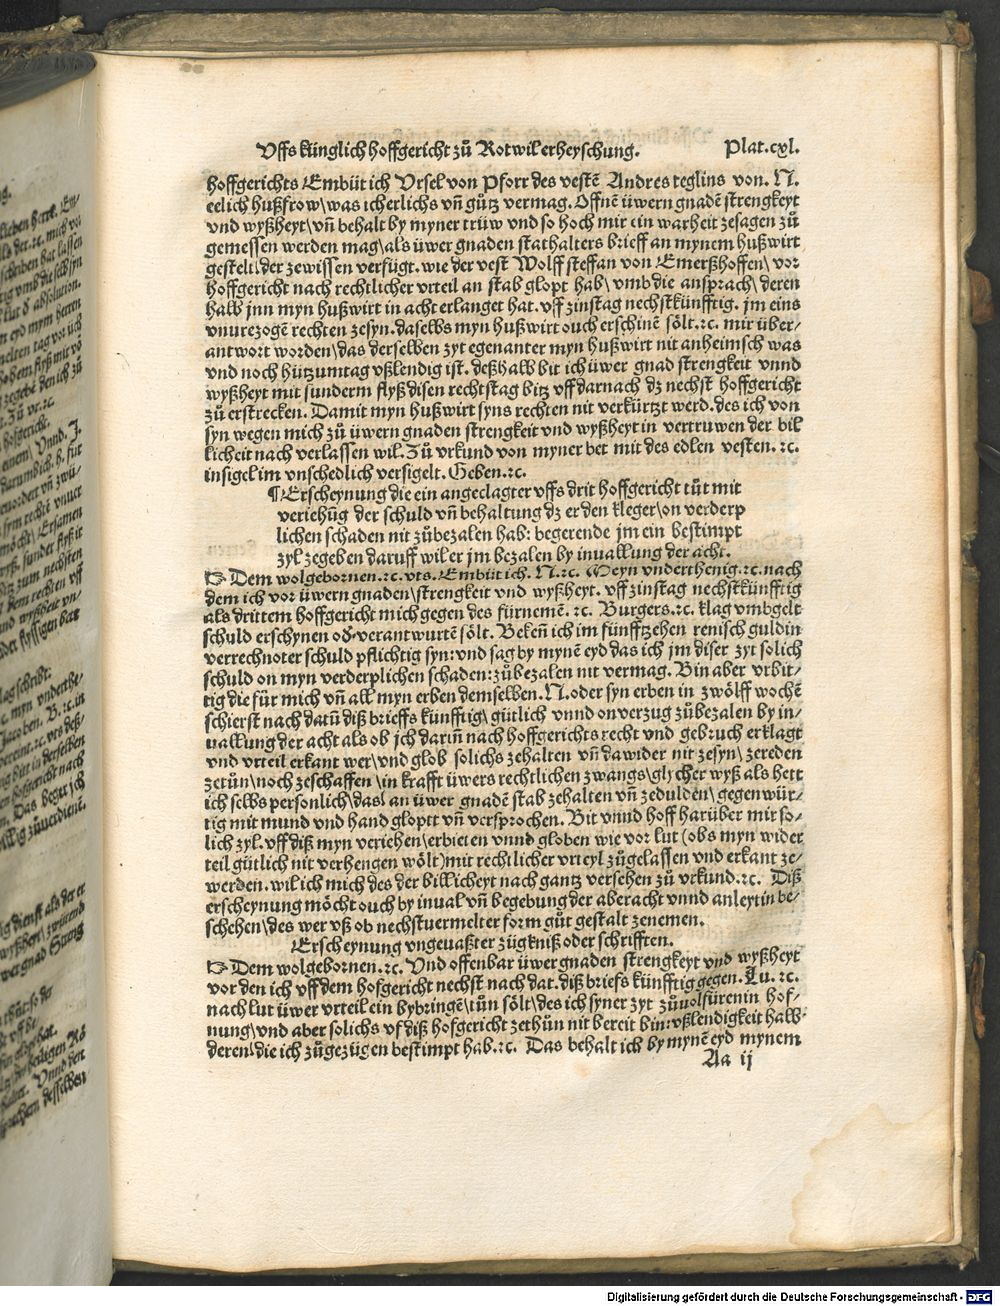 Uffs künglich hoffgericht zů Rotwil erheyschung. Plat.cxl.
hoffgerichts Embüt ich Ursel von Pforr des vestē Andres teglins von. N.
eelich hußfrow\was icherlichs vn̄ gůtz vermag. Offnē üwern gnadē strengkeyt
vnd wyßheyt\vn̄ behalt by myner trüw vnd so hoch mir ein warheit zesagen zů
gemessen werden mag\als üwer gnaden stathalters brieff an mynem hußwirt
gestelt\der zewissen verfügt. wie der vest Wolff steffan von Emerßhoffen\ vor
hoffgericht nach rechtlicher vrteil an stab glopt hab\ vmb die ansprach\ deren
halb jnn myn hußwirt in acht erlanget hat. vff zinstag nechstkünfftig. jm eins
vnurezognē rechten zesyn. daselbs myn hußwirt ouch erschinē sölt.⁊c. mir über-
antwort worden\das derselben zyt egenanter myn hußwirt nit anheimsch was
vnd noch hützumtag vßlendig ist. deßhalb bit ich üwer gnad strengkeit vnnd
wyßheyt mit sunderm flyß disen rechtstag bitz vff darnach dz nechst hoffgericht
zů erstrecken. Damit myn hußwirt syns rechten nit verkürtzt werd. des ich von
syn wegen mich zů üwern gnaden strengkeit vnd wyßheyt in vertruwen der bil
licheit nach verlassen wil. Zů vrkund von myner bet mit des edlen vesten. ⁊c.
insigel im vnschedlich versigelt. Geben.⁊c.
¶Erscheynung die ein angeclagter vffs drit hoffgericht tůt mit
veriehūg der schuld vn̄ behaltung dz er den kleger\on verderp
lichen schaden nit zůbezalen hab: begerende jm ein bestimpt
zyl zegeben daruff wil er jm bezalen by inuallung der acht.
☞ Dem wolgebornen.⁊c. vts. Embüt ich. N.⁊c. Meyn vnderthenig.⁊c. nach
dem ich vor üwern gnaden\strengkeit vnd wyßheyt. vff zinstag nechstkünfftig
als drittem hoffgericht mich gegen des fürnemē. ⁊c. Burgers.⁊c. klag vmbgelt
schuld erschynen od̓ verantwurtē sölt. Bekeñ ich im fünfftzehen renisch guldin
verrechnoter schuld pflichtig syn: vnd sag by mynē eyd das ich jm diser zyt solich
schuld on myn verderplichen schaden: zůbezalen nit vermag. Bin aber vrbit-
tig die für mich vn̄ all myn erben demselben. N. oder syn erben in zwölff wochē
schierst nach datū diß brieffs künfftig\ gütlich vnnd on verzug zůbezalen by in-
uallung der acht als ob ich dariñ nach hoffgerichts recht vnd gebruch erklagt
vnd vrteil erkant wer\vnd glob solichs zehalten vn̄ dawider nit zesyn\ zereden
zetůn\noch zeschaffen \in krafft üwers rechtlichen zwangs\glycher wyß als hett
ich selbs personlich\das\ an üwer gnadē stab zehalten vn̄ zedulden\ gegenwür-
tig mit mund vnd hand gloptt vn̄ versprochen. Bit vnnd hoff harüber mir so-
lich zyl. vff diß myn veriehen\erbieten vnnd globen wie vor lut (obs myn wider
teil gütlich nit verhengen wölt) mit rechtlicher vrteyl zůgelassen vnd erkant ze-
werden. wil ich mich des der billicheyt nach gantz versehen zů vrkund.⁊c. Diß
erscheynung möcht ouch by inual vn̄ begebung der aberacht vnnd anleyt in be-
schehen\des wer vß ob nechstuermelter form gůt gestalt zenemen.
Erscheynung vngeuaßter zügkniß oder schrifften.
☞ Dem wolgebornen.⁊c. Und offenbar üwer gnaden strengkeyt vnd wyßheyt
vor den ich vff dem hofgericht nechst nach dat. diß briefs künfftig gegen. Lu. ⁊c.
nach lut üwer vrteil ein bybringē\tůn sölt\des ich syner zyt zůuolfüren in hof-
nung\vnd aber solichs vf diß hofgericht zethůn nit bereit bin: vßlendigkeit halb
deren\die ich zůgezügen bestimpt hab.⁊c. Das behalt ich by mynē eyd mynem
Aa ij
Digitalisierung gefördert durch die Deutsche Forschungsgemeinschaft - DFG